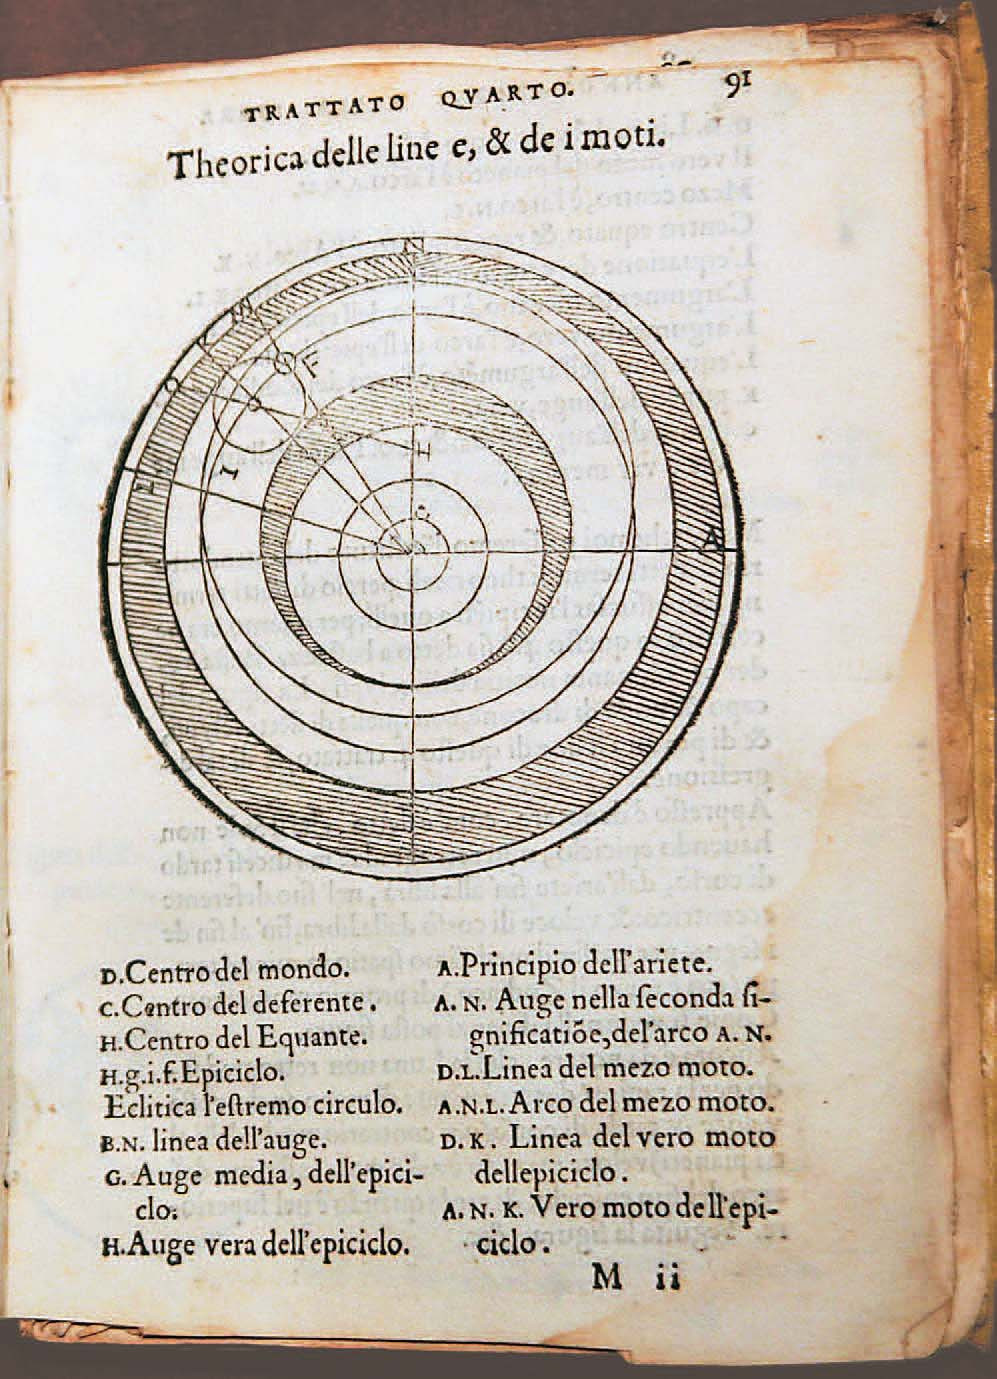 TRATTATO QVARTO. 91
Theorica delle line e, & de i moti.
N
A
D.Centro del mondo.
C.Centro del deferente.
H.Centro del Equante.
H.g.i.f.Epiciclo.
Eclitica l'eſtremo circulo.
B.N. linea dell'auge.
G. Auge media, dell'epici-
clo.
H.Auge vera dell'epiciclo.
A.Principio dell'ariete.
A. N. Auge nella ſeconda ſi-
gnificatiõe,del'arco A. N.
D.L.Linea del mezo moto.
A.N.L.Arco del mezo moto.
D. K. Linea del vero moto
dellepiciclo.
A. N. K. Vero moto dell'epi-
ciclo.
M ii